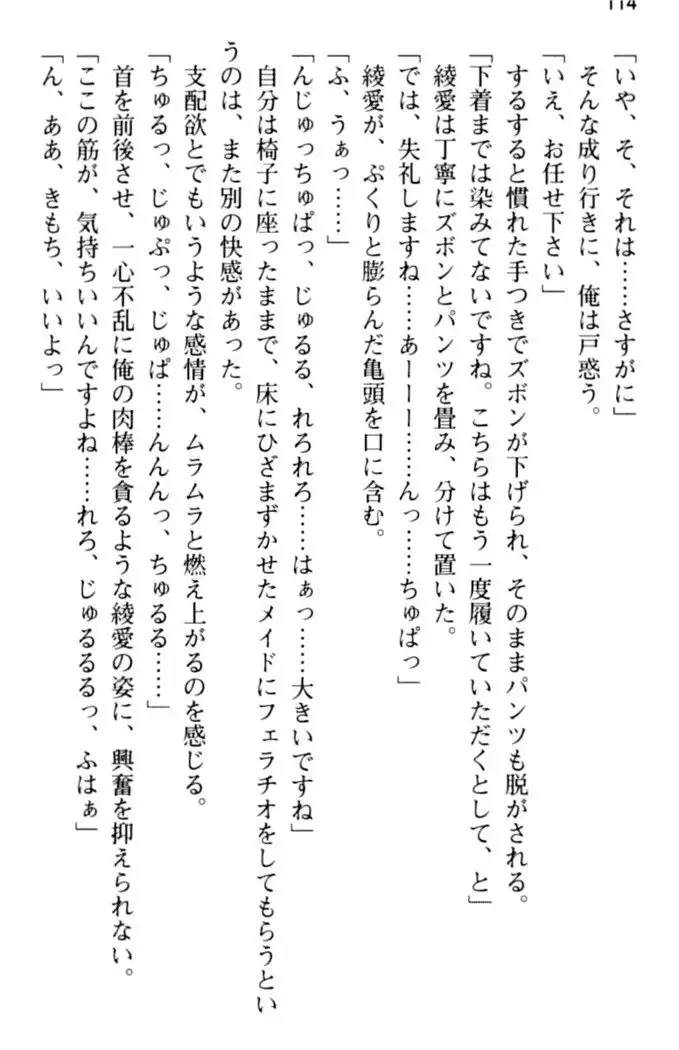 114
「いや、そ、それは……さすがに」
そんな成り行きに、俺は戸惑う。
「いえ、お任せ下さい」
するすると慣れた手つきでズボンが下げられ、そのままパンツも脱がされる。
「下着までは染みてないですね。こちらはもう一度履いていただくとして、と」
綾愛は丁寧にズボンとパンツを畳み、分けて置いた。
「では、失礼しますね……あーーー……んっ……ちゅぱっ」
綾愛が、ぷくりと膨らんだ亀頭を口に含む。
「ふ、うぁっ……」
「んじゅっちゅぱっ、じゅるる、れろれろ……はぁっ……大きいですね」
自分は椅子に座ったままで、床にひざまずかせたメイドにフェラチオをしてもらうとい
うのは、また別の快感があった。
支配欲とでもいうような感情が、ムラムラと燃え上がるのを感じる。
「ちゅるっ、じゅぷっ、じゅぱ……んんんっ、ちゅるる……」
首を前後させ、一心不乱に俺の肉棒を貪るような綾愛の姿に、興奮を抑えられない。
「ここの筋が、気持ちいいんですよね……れろ、じゅるるるっ、ふはぁ」
「ん、ああ、きもち、いいよっ」